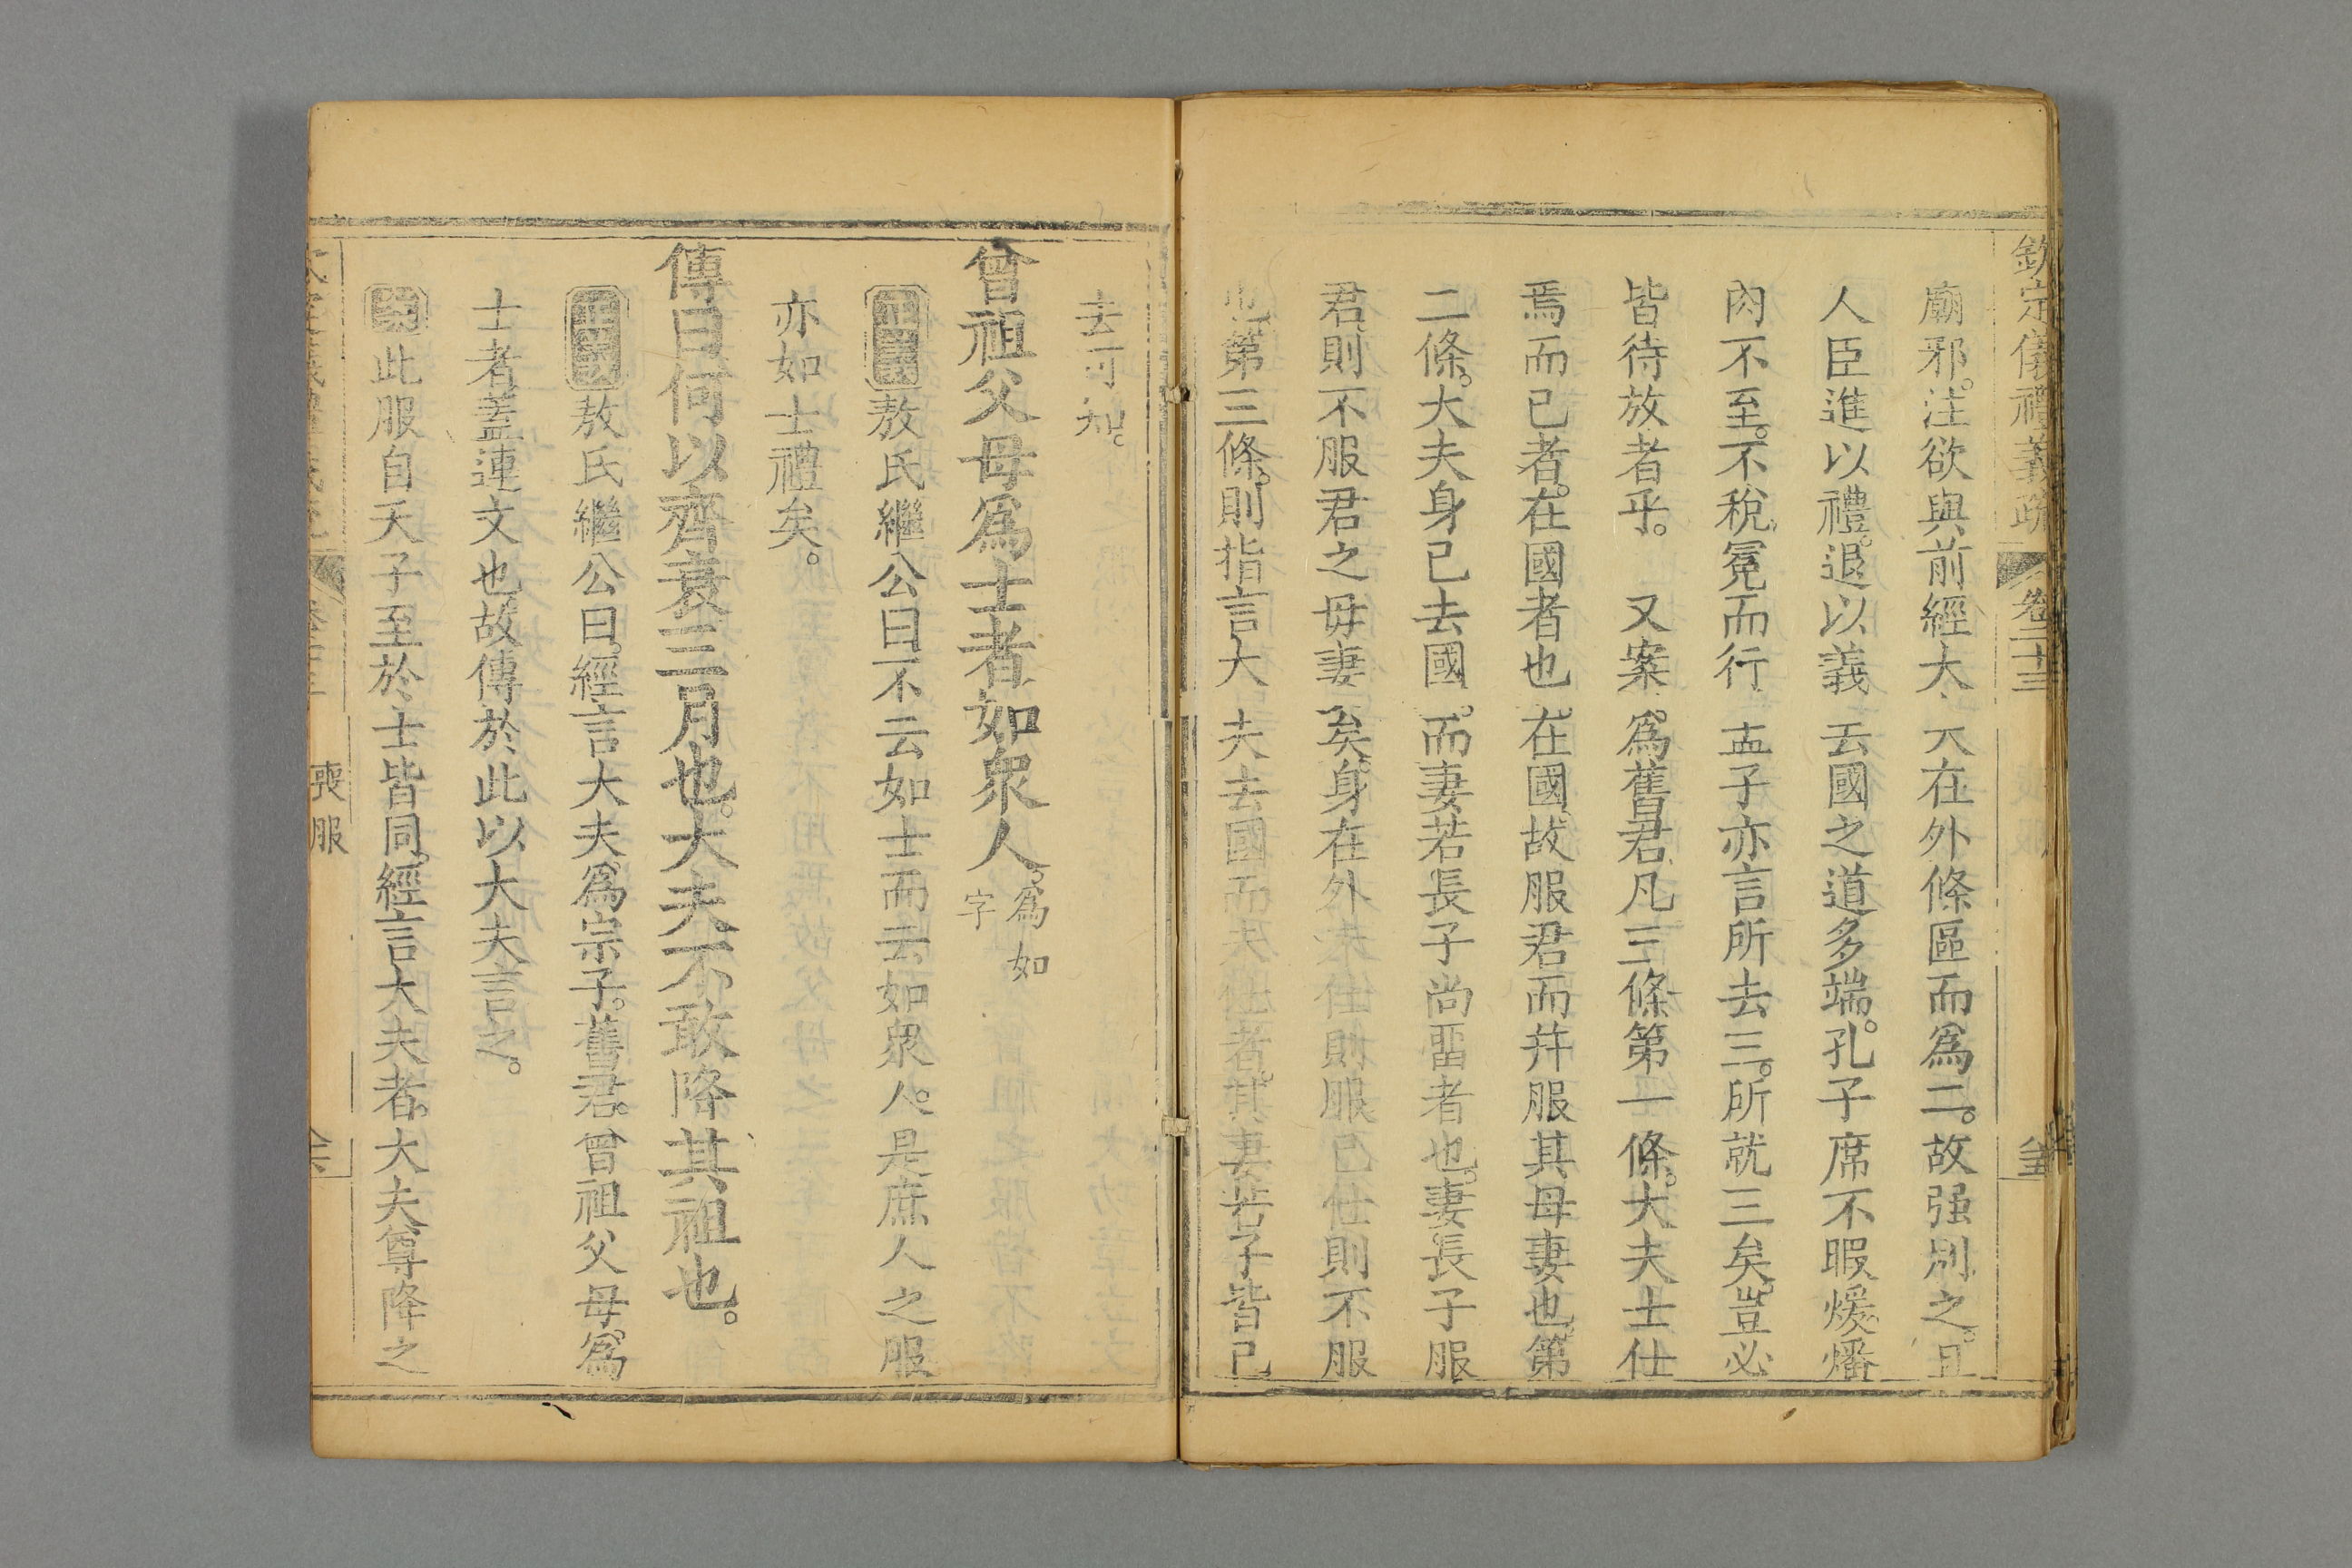 欽定儀禮義疏 卷二十三
廟邪。注欲與前經大夫在外條區而爲二。故强別之。且
人臣進以禮。退以義。去國之道多端。孔子席不暇煖。燔
肉不至。不稅冕而行。孟子亦言所去三。所就三矣。豈必
皆待放者乎。 又案。爲舊君凡三條。第一條。大夫士仕
焉而已者。在國者也。在國。故服君而并服其母妻也。第
二條。大夫身已去國。而妻若長子尚畱者也。妻長子服
君。則不服君之母妻矣。身在外。未仕則服。已仕則不服
也。第三條。則指言大夫去國而未仕者。其妻若子皆已
去可知。
曾祖父母爲士者如衆人。爲如
字
敖氏繼公曰。不云如士而云如衆人。是庶人之服
亦如士禮矣。
傳曰何以齊衰三月也。大夫不敢降其祖也。
敖氏繼公曰。經言大夫爲宗子。舊君。曾祖父母。爲
士者。蓋連文也。故傳於此以大夫言之。
此服自天子至於士皆同。經言大夫者。大夫尊降之
喪服